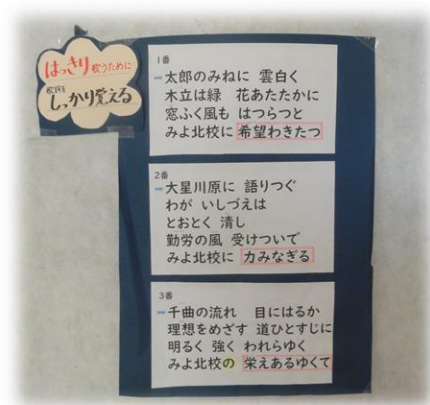 はっきり歌うために
歌詞を
しっかり覚える
1番
➡太郎のみねに 雲白く
木立は緑 花あたたかに
窓ふく風も はつらつと
みよ北校に 希望わきたつ
2番
➡大星川原に 語りつぐ
わが いしづえは
とおとく 清し
勤労の風 受けついで
みよ北校に 力みなぎる
3番
➡千曲の流れ 目にはるか
理想をめざす 道ひとすじに
明るく 強く われらゆく
みよ北校の 栄えあるゆくて